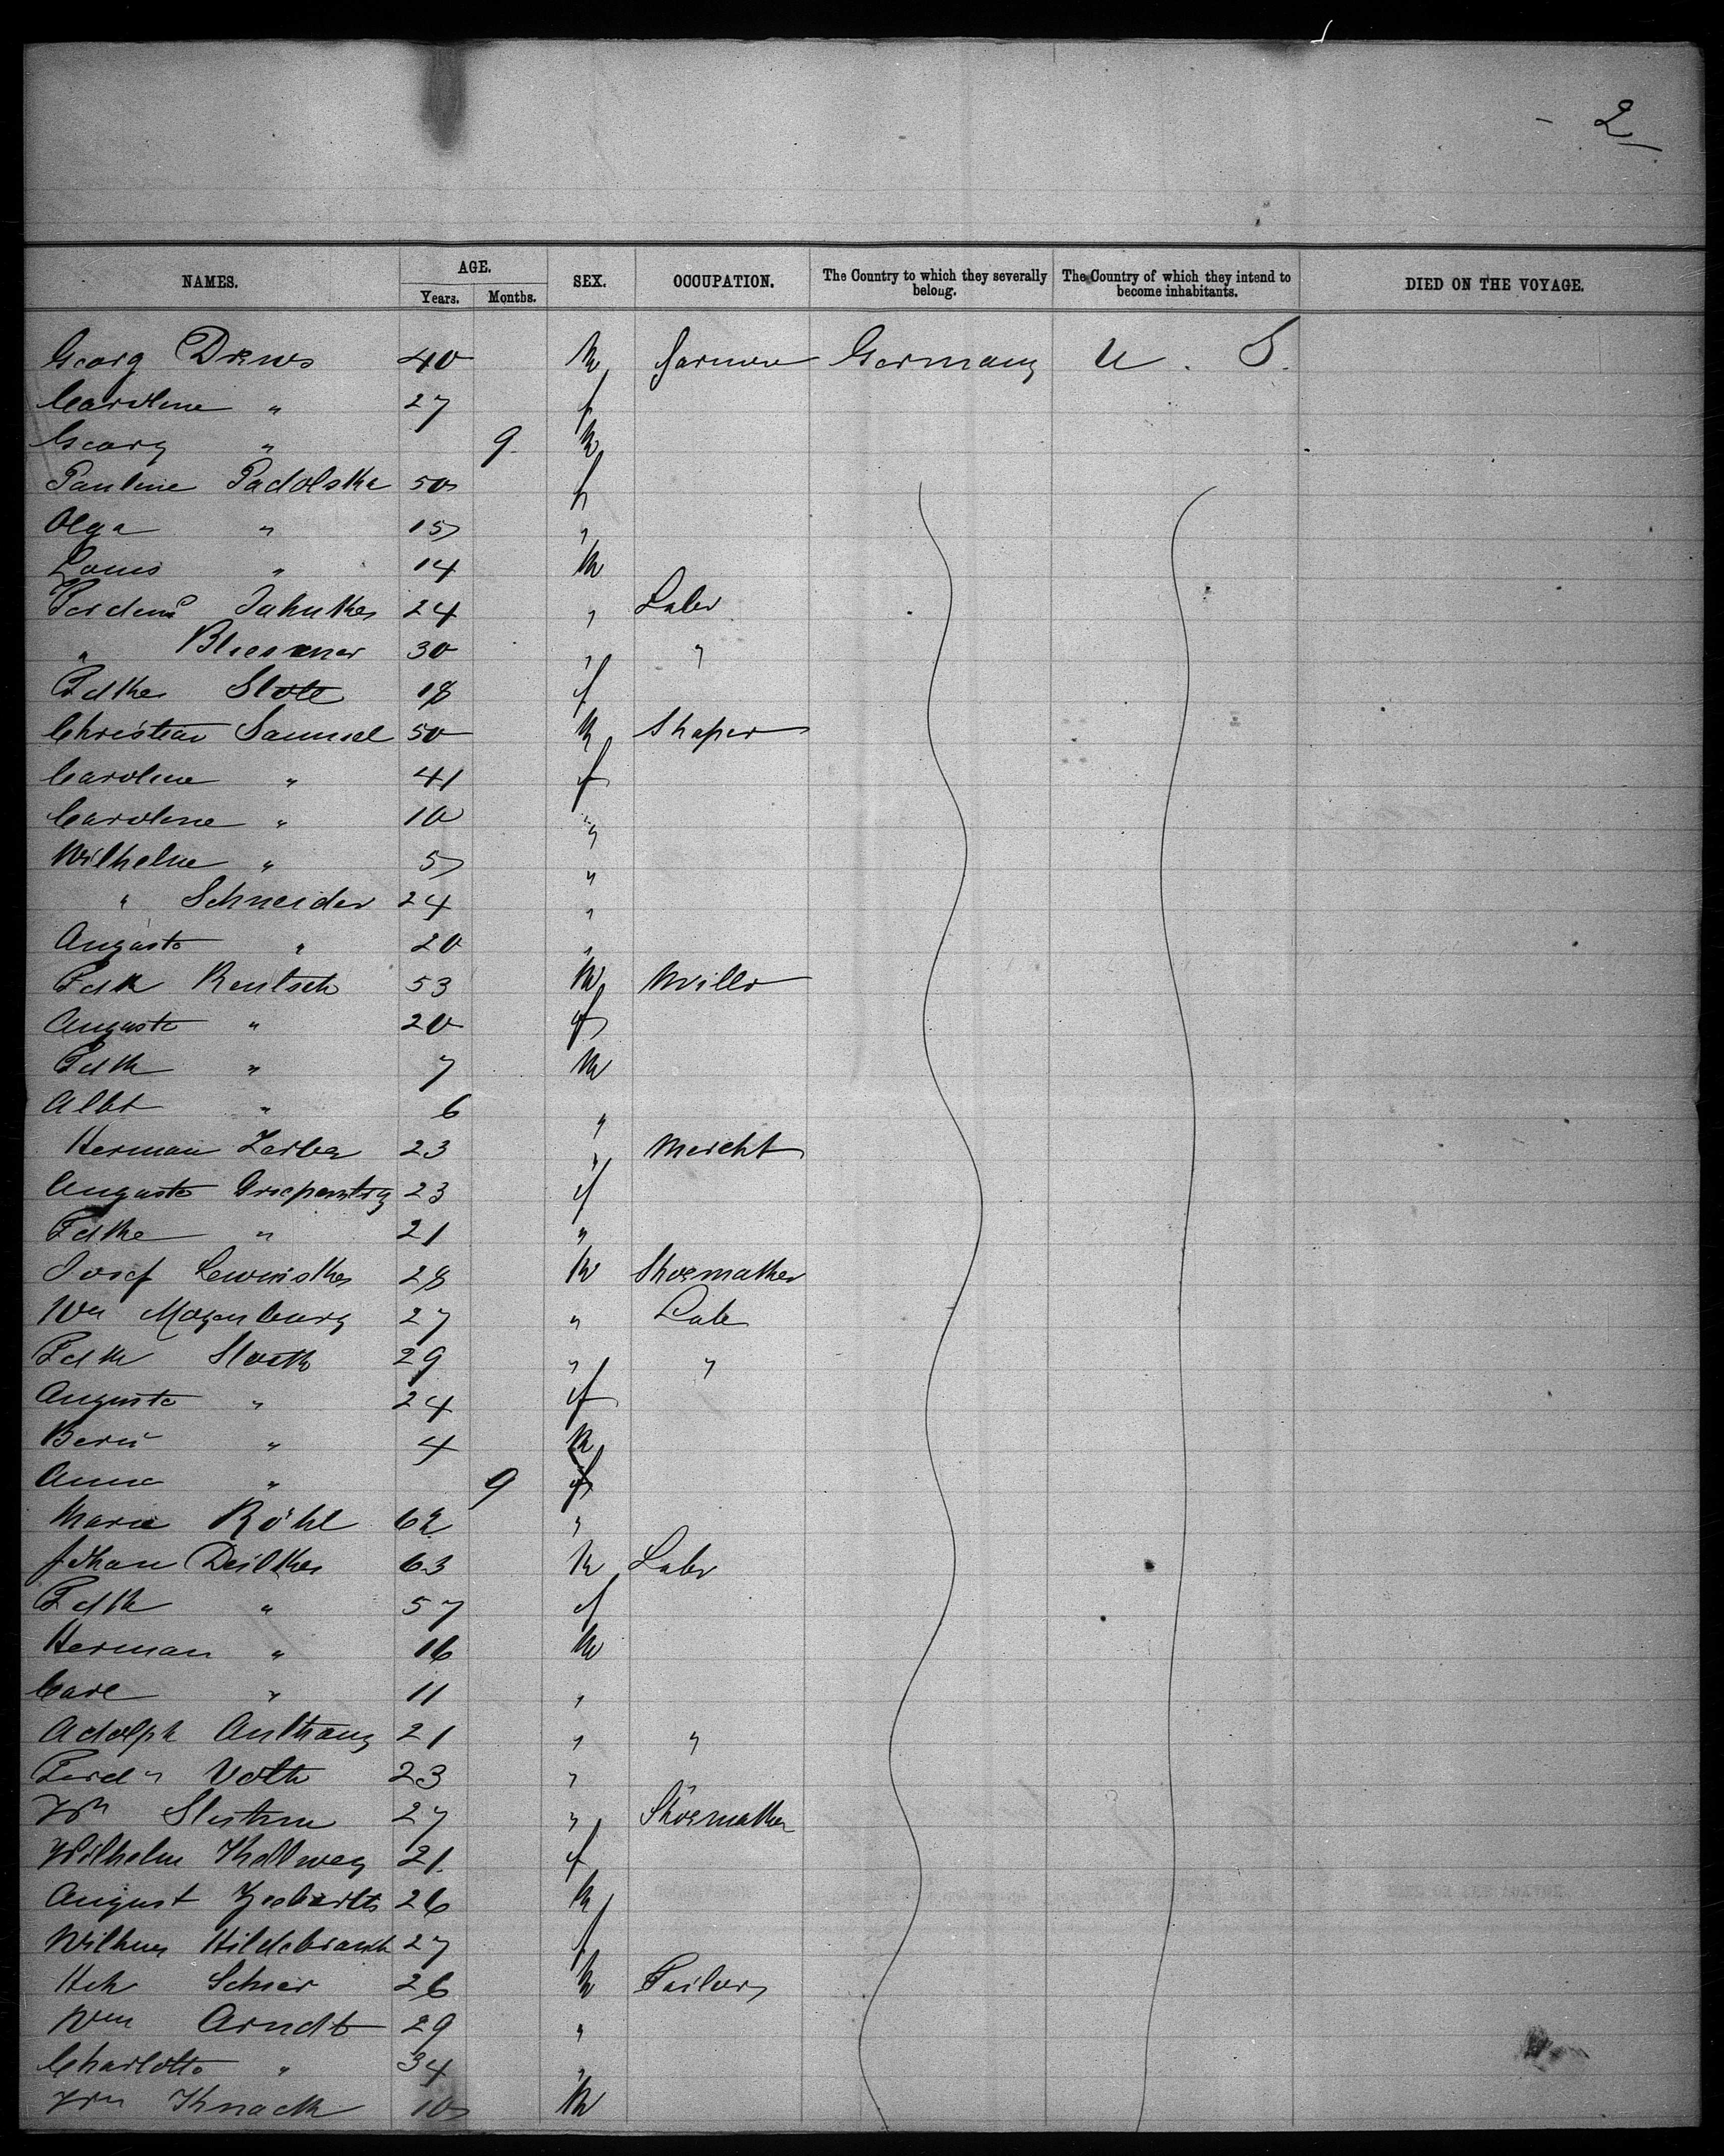 - 2
NAMES. AGE. SEX. OCCUPATION. The Country to which they severally belong. The Country of which they intend to become inhabitants. DIED ON THE VOYAGE.
Years. Months.
Georg Drews 40 M farmer Germany U. S.
Caroline " 27 f
Georg " 9 M
Pauline Padolske 50 f
Olga " 15 "
Louis " 14 M
Ferdind Jahnke 24 " Labr
" 30 " "
Fdke 18 f
Christian Samuel 50 M Shaper
Caroline " 41 f
Caroline " 10 "
Wilhelme " 5 "
" Schneider 24 "
Auguste " 20 "
Fdk Rentsch 53 M Millr
Auguste " 20 f
Fdk " 7 M
Albt " 6 "
Herman 23 " Mercht
Auguste 23 f
Fdke " 21 "
Josef Lewinske 28 M Shoemaker
Wm Mayenburg 27 " Lab
Fdk 29 " "
Auguste " 24 f
" 4 M
Anna " 9 f
Marie Röhl 62 "
Johan 63 M Labr
Fdk " 57 f
Herman " 16 M
Carl " 11 "
Adolph Anthony 21 " "
Ferdn Voth 23 "
Wm 27 " Shoemaker
Wilhelm Kellweg 21 f
August 26 M
Wilhm Hildebrandt 27 f
Hch Schier 26 M Tailor
Wm Arndt 29 "
Charlotte " 34 "
Wm Knack 10 M